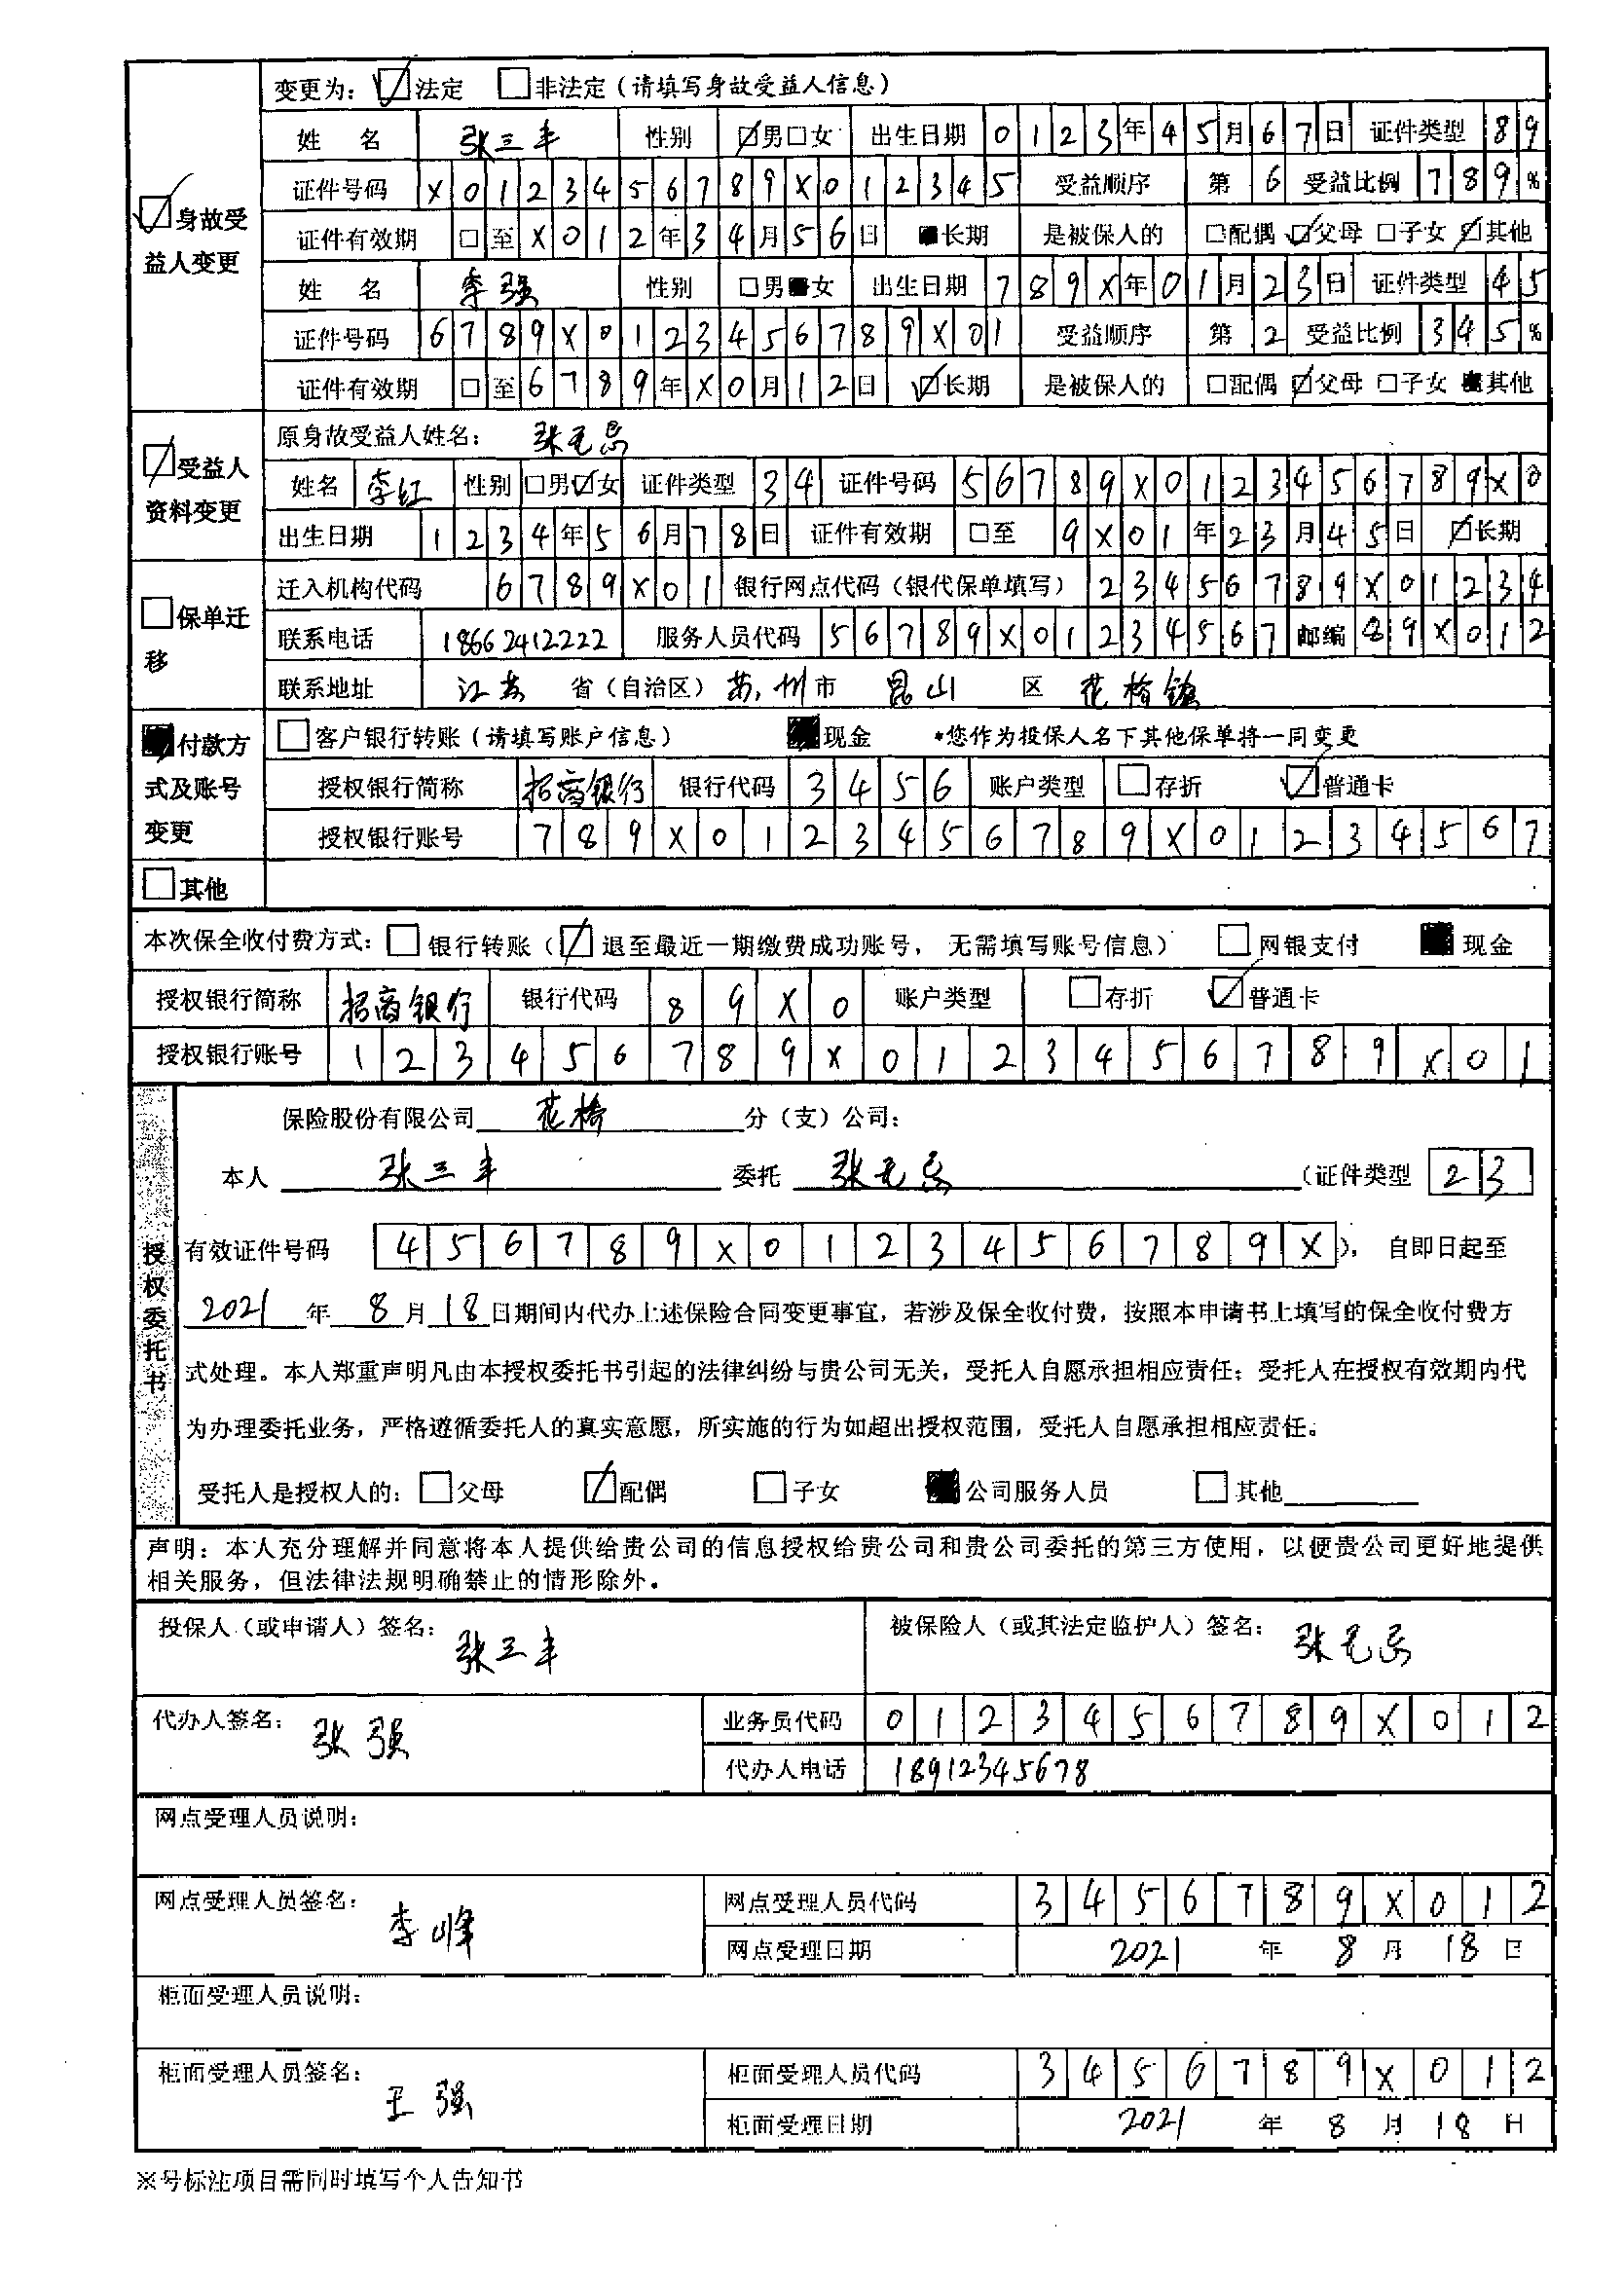 变更为：☑法定 □非法定（请填写身故受益人信息）
☑身故受益人变更
姓 名 张三丰 性别 ☑男□女 出生日期 0123年45月67日 证件类型 89
证件号码 X0123456789X012345 受益顺序 第6 受益比例 789%
证件有效期 □至X012年34月56日 ■长期 是被保人的 □配偶☑父母□子女☑其他
姓 名 李强 性别 □男■女 出生日期 789X年01月23日 证件类型 45
证件号码 6789X0123456789X01 受益顺序 第2 受益比例 345%
证件有效期 □至6789年X0月12日 ☑长期 是被保人的 □配偶☑父母□子女■其他
☑受益人资料变更
原身故受益人姓名： 张无忌
姓名 李红 性别 □男☑女 证件类型 34 证件号码 56789X0123456789X0
出生日期 1234年56月78日 证件有效期 □至 9X01年23月45日 ☑长期
□保单迁移
迁入机构代码 6789X01 银行网点代码（银代保单填写） 23456789X01234
联系电话 18662412222 服务人员代码 56789X01234567 邮编 89X012
联系地址 江苏 省（自治区） 苏州 市 昆山 区 花桥镇
■付款方式及账号变更
□客户银行转账（请填写账户信息） ■现金 *您作为投保人名下其他保单将一同变更
授权银行简称 招商银行 银行代码 3456 账户类型 □存折 ☑普通卡
授权银行账号 789X0123456789X01234567
□其他
本次保全收付费方式：□银行转账（☑退至最近一期缴费成功账号，无需填写账号信息） □网银支付 ■现金
授权银行简称 招商银行 银行代码 89X0 账户类型 □存折 ☑普通卡
授权银行账号 123456789X0123456789X01
授权委托书
保险股份有限公司 花桥 分（支）公司：
本人 张三丰 委托 张无忌 （证件类型 23
有效证件号码 456789X0123456789X ），自即日起至
2021 年 8 月 18 日期间内代办上述保险合同变更事宜，若涉及保全收付费，按照本申请书上填写的保全收付费方
式处理。本人郑重声明凡由本授权委托书引起的法律纠纷与贵公司无关，受托人自愿承担相应责任；受托人在授权有效期内代
为办理委托业务，严格遵循委托人的真实意愿，所实施的行为如超出授权范围，受托人自愿承担相应责任。
受托人是授权人的：□父母 ☑配偶 □子女 ■公司服务人员 □其他
声明：本人充分理解并同意将本人提供给贵公司的信息授权给贵公司和贵公司委托的第三方使用，以便贵公司更好地提供
相关服务，但法律法规明确禁止的情形除外。
投保人（或申请人）签名： 张三丰 被保险人（或其法定监护人）签名： 张无忌
代办人签名： 张强 业务员代码 0123456789X012
代办人电话 18912345678
网点受理人员说明：
网点受理人员签名： 李峰 网点受理人员代码 3456789X012
网点受理日期 2021 年 8 月 18 日
柜面受理人员说明：
柜面受理人员签名： 王强 柜面受理人员代码 3456789X012
柜面受理日期 2021 年 8 月 18 日
※号标注项目需同时填写个人告知书